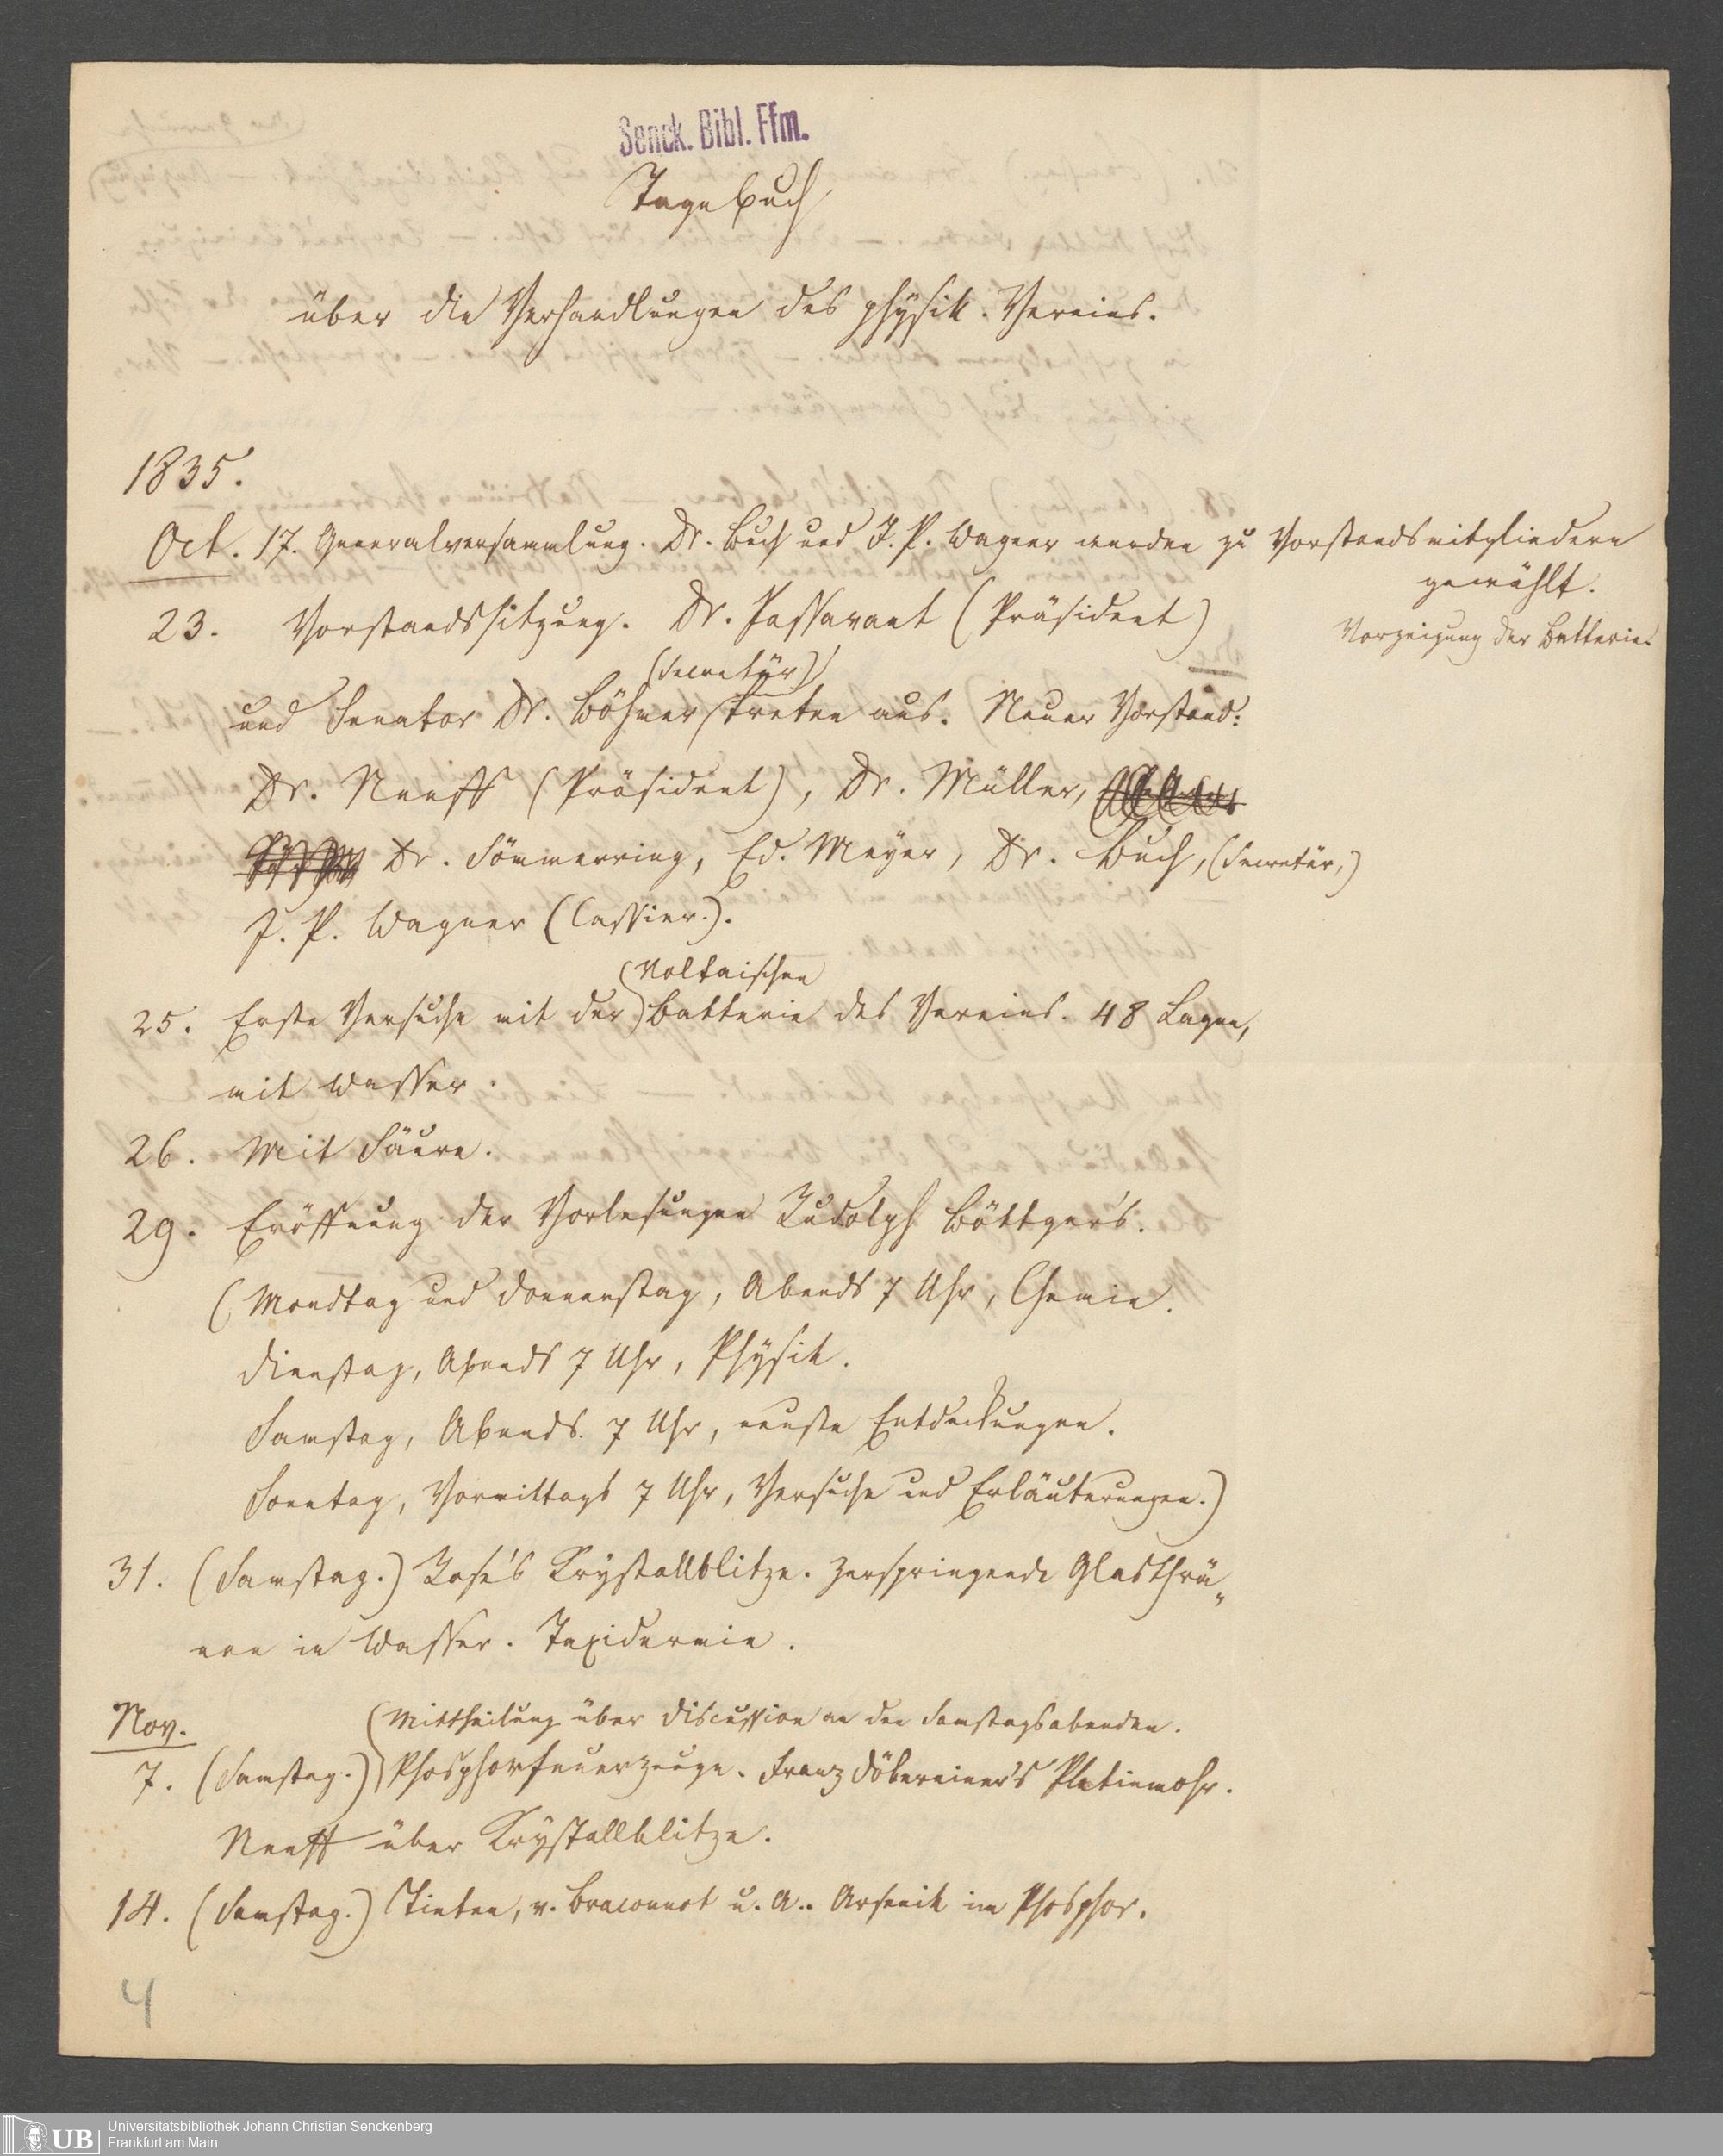 Senck. Bibl. Ffm.
Tagebuch
über die Verhandlungen des physik. Vereins.
1835.
Oct. 17. Generalversammlung. Dr. Buch und J. P. Wagner werden zu Vorstandsmitgliedern
gewählt.
23. Vorstandssitzung. Dr. Passavant (Präsident)
Vorzeigung der Batterie.
(Secretär)
und Senator Dr. Böhmer treten aus. Neuer Vorstand:
Dr. Neeff (Präsident), Dr. Müller,
Dr. Sömmerring, Ed. Meyer, Dr. Buch, (Secretär,)
J. P. Wagner (Cassier.).
Voltaischen
25. Erste Versuche mit der Batterie des Vereins. 48 Lagen,
mit Wasser.
26. Mit Säure.
29. Eröffnung der Vorlesungen Rudolph Böttger's.
(Mondtag und Donnerstag, Abends 7 Uhr, Chemie.
Dienstag, Abends 7 Uhr, Physik.
Samstag, Abends. 7 Uhr, neuste Entdeckungen.
Sonntag, Vormittags 7 Uhr, Versuche und Erläuterungen.)
31. (Samstag.) Rose's Krystallblitze. Zerspringende Glasthrä„
nen in Wasser. Taxidermie.
Nov.
(Mittheilung über Discussion an den Samstagsabenden.
7. (Samstag.) Phosphorfeuerzeuge. Franz Döbereiner's Platinmohr.
Neeff über Krystallblitze.
14. (Samstag.) Tinten, v. Braconnot u. A.. Arsenik im Phosphor.
4
UB
Universitätsbibliothek Johann Christian Senckenberg
Frankfurt am Main